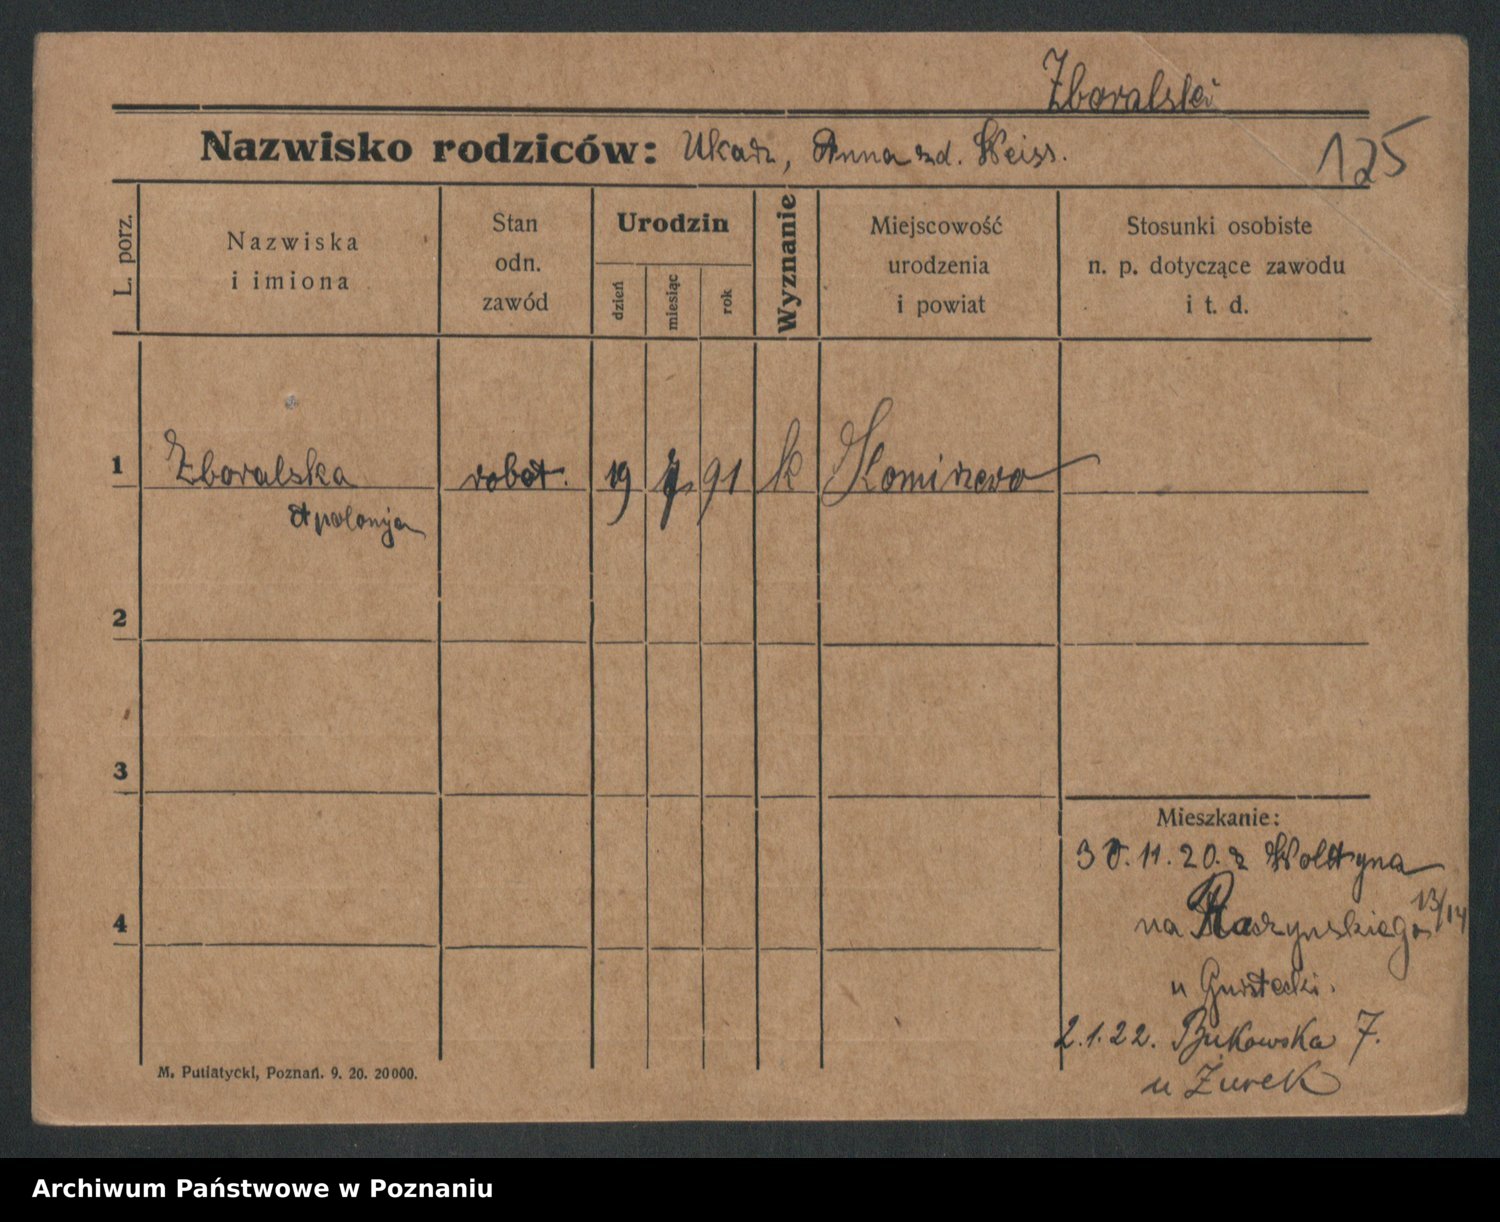 Zboralski
Nazwisko rodziców: Anna zd. Weiss.
125
L. porz.
Nazwiska i imiona
Stan odn. zawód
Urodzin
dzień
miesiąc
rok
Wyznanie
Miejscowość urodzenia i powiat
Stosunki osobiste n. p. dotyczące zawodu i t. d.
1 Zboralska robot. 19 7 91 k
Apolonja
2
3
Mieszkanie:
30.11.20. z
4
na Raszynskiego 13/14
u
2.1.22. Bukowska 7.
u Żurek
M. Putiatycki, Poznań. 9. 20. 20000.
Archiwum Państwowe w Poznaniu